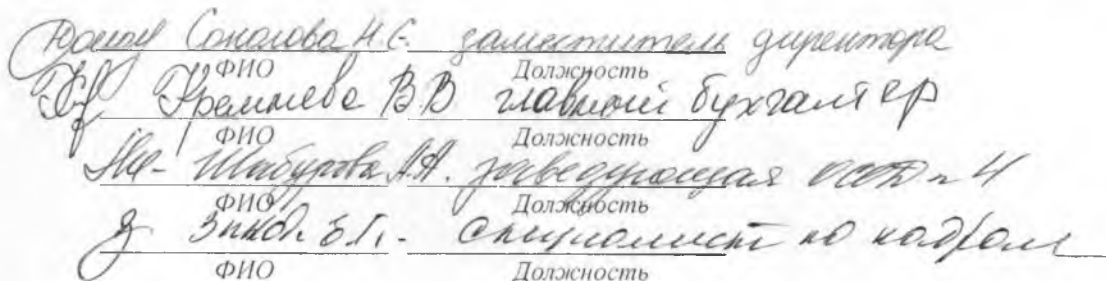 Соколова Н.С. заместитель директора
ФИО Должность
В.В. главный бухгалтер
ФИО Должность
Шабурова А.А. заведующая
ФИО Должность
специалист по кадрам
ФИО Должность